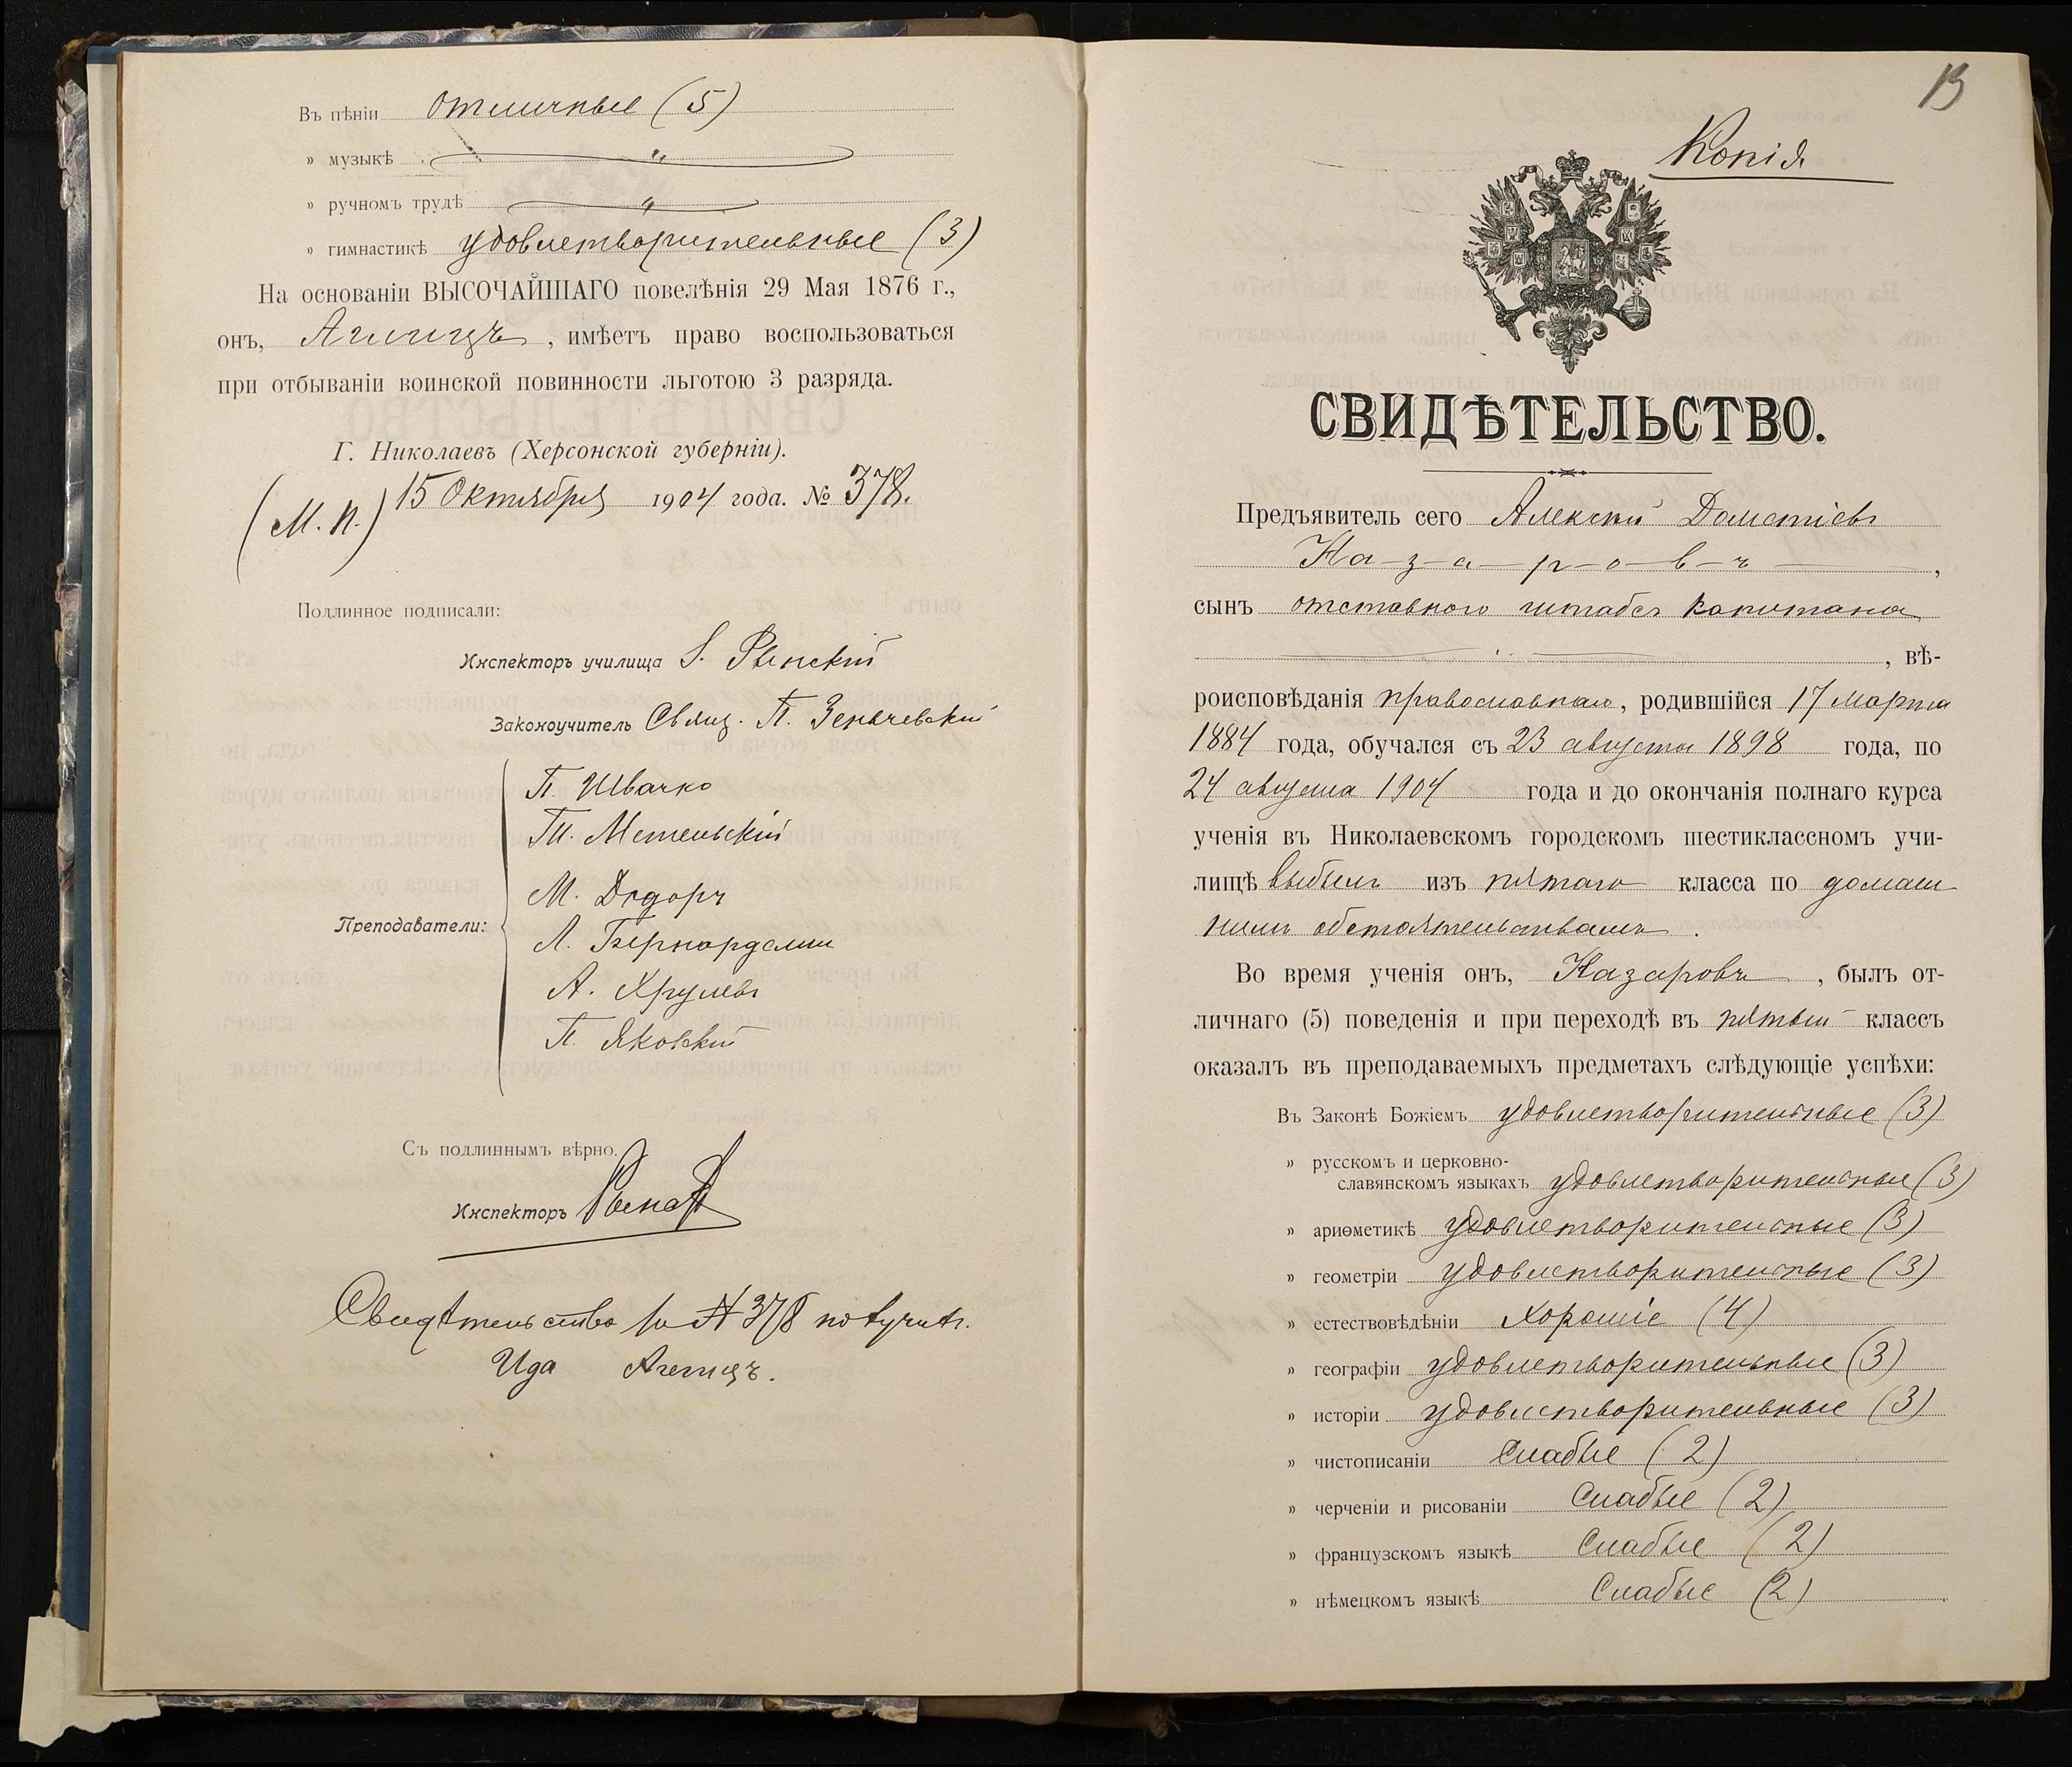 Въ пѣніи отличные (5)
» музыкѣ "
» ручномъ трудѣ "
» гимнастикѣ удовлетворительные (3)
На основаніи ВЫСОЧАЙШАГО повелѣнія 29 Мая 1876 г.,
онъ, , имѣетъ право воспользоваться
при отбываніи воинской повинности льготою 3 разряда.
Г. Николаевъ (Херсонской губерніи).
(М. П.) 15 Октября 1904 года. № 378.
Подлинное подписали:
Инспекторъ училища
Законоучитель Свящ. П.
Преподаватели:
П. Швачко
М. Додоръ
Л. Бернардацци
А. Хрулевъ
П. Яковскій
Съ подлиннымъ вѣрно.
Инспекторъ
Свидѣтельство за № 378 получилъ.
Ида
13
Копія
СВИДѢТЕЛЬСТВО.
Предъявитель сего Алексѣй
Н-а-з-а-р-о-в-ъ,
сынъ отставного штабсъ капитана
, вѣ-
роисповѣданія православнаго, родившійся 17 марта
1884 года, обучался съ 23 августа 1898 года, по
24 августа 1904 года и до окончанія полнаго курса
ученія въ Николаевскомъ городскомъ шестиклассномъ учи-
лищѣ выбылъ изъ пятаго класса по домаш
нимъ обстоятельствамъ.
Во время ученія онъ, Назаровъ, былъ от-
личнаго (5) поведенія и при переходѣ въ пятый классъ
оказалъ въ преподаваемыхъ предметахъ слѣдующіе успѣхи:
Въ Законѣ Божіемъ удовлетворительные (3)
» русскомъ и церковно-
славянскомъ языкахъ удовлетворительные (3)
» ариѳметикѣ удовлетворительные (3)
» геометріи удовлетворительные (3)
» естествовѣдѣніи Хорошіе (4)
» географіи удовлетворительные (3)
» исторіи удовлетворительные (3)
» чистописаніи Слабые (2)
» черченіи и рисованіи Слабые (2)
» французскомъ языкѣ Слабые (2)
» нѣмецкомъ языкѣ Слабые (2)